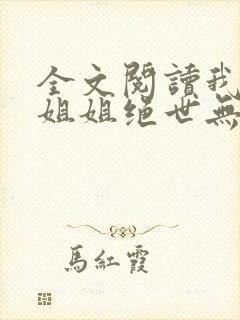 全文閱讀我
姐姐絕世無
馬紅霞